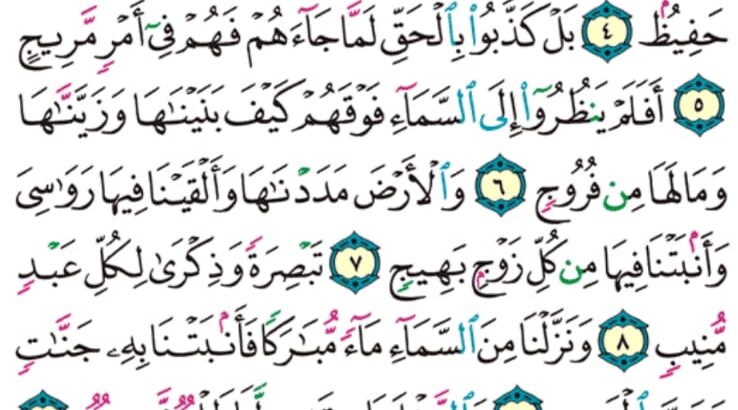 حَفِيظٌۢ ٤ بَلْ كَذَّبُوا۟ بِٱلْحَقِّ لَمَّا جَآءَهُمْ فَهُمْ فِىٓ أَمْرٍ مَّرِيجٍ
٥ أَفَلَمْ يَنظُرُوٓا۟ إِلَى ٱلسَّمَآءِ فَوْقَهُمْ كَيْفَ بَنَيْنَٰهَا وَزَيَّنَّٰهَا
وَمَا لَهَا مِن فُرُوجٍ ٦ وَٱلْأَرْضَ مَدَدْنَٰهَا وَأَلْقَيْنَا فِيهَا رَوَٰسِىَ
وَأَنۢبَتْنَا فِيهَا مِن كُلِّ زَوْجٍۭ بَهِيجٍ ٧ تَبْصِرَةً وَذِكْرَىٰ لِكُلِّ عَبْدٍ
مُّنِيبٍ ٨ وَنَزَّلْنَا مِنَ ٱلسَّمَآءِ مَآءً مُّبَٰرَكًا فَأَنۢبَتْنَا بِهِۦ جَنَّٰتٍ